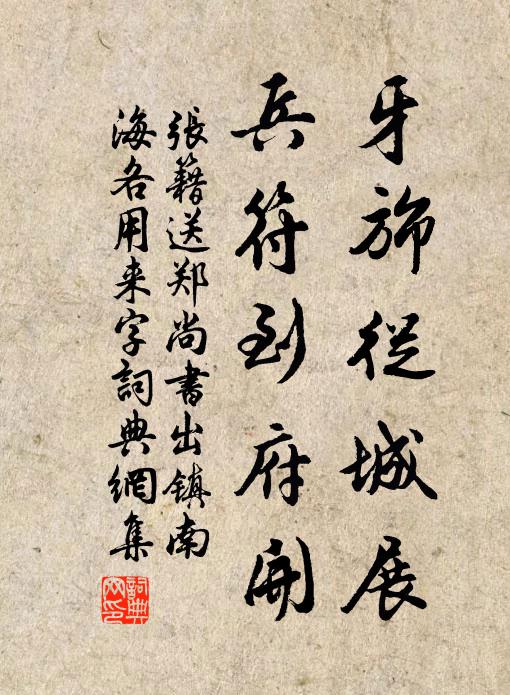 牙旆從城展
兵符到府開
張籍送郑尚書出镇南
海各用来字詞典網集
詞典